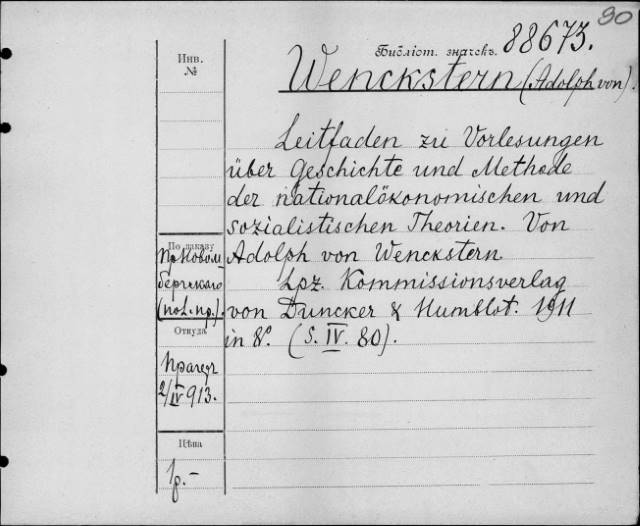 90
Инв.
№
Библіот. значекъ. 88673.
Wenckstern (Adolph von).
Leitfaden zu Vorlesungen
über Geschichte und Methode
der nationalökonomischen und
sozialistischen Theorien. Von
Adolph von Wenckstern
Lpz. Kommissionsverlag
von Duncker & Humblot. 1911
in 8º. (S. IV. 80).
По заказу
пр. Новом-
бергскаго
Откуда
2/IV 913.
Цѣна
1р.-